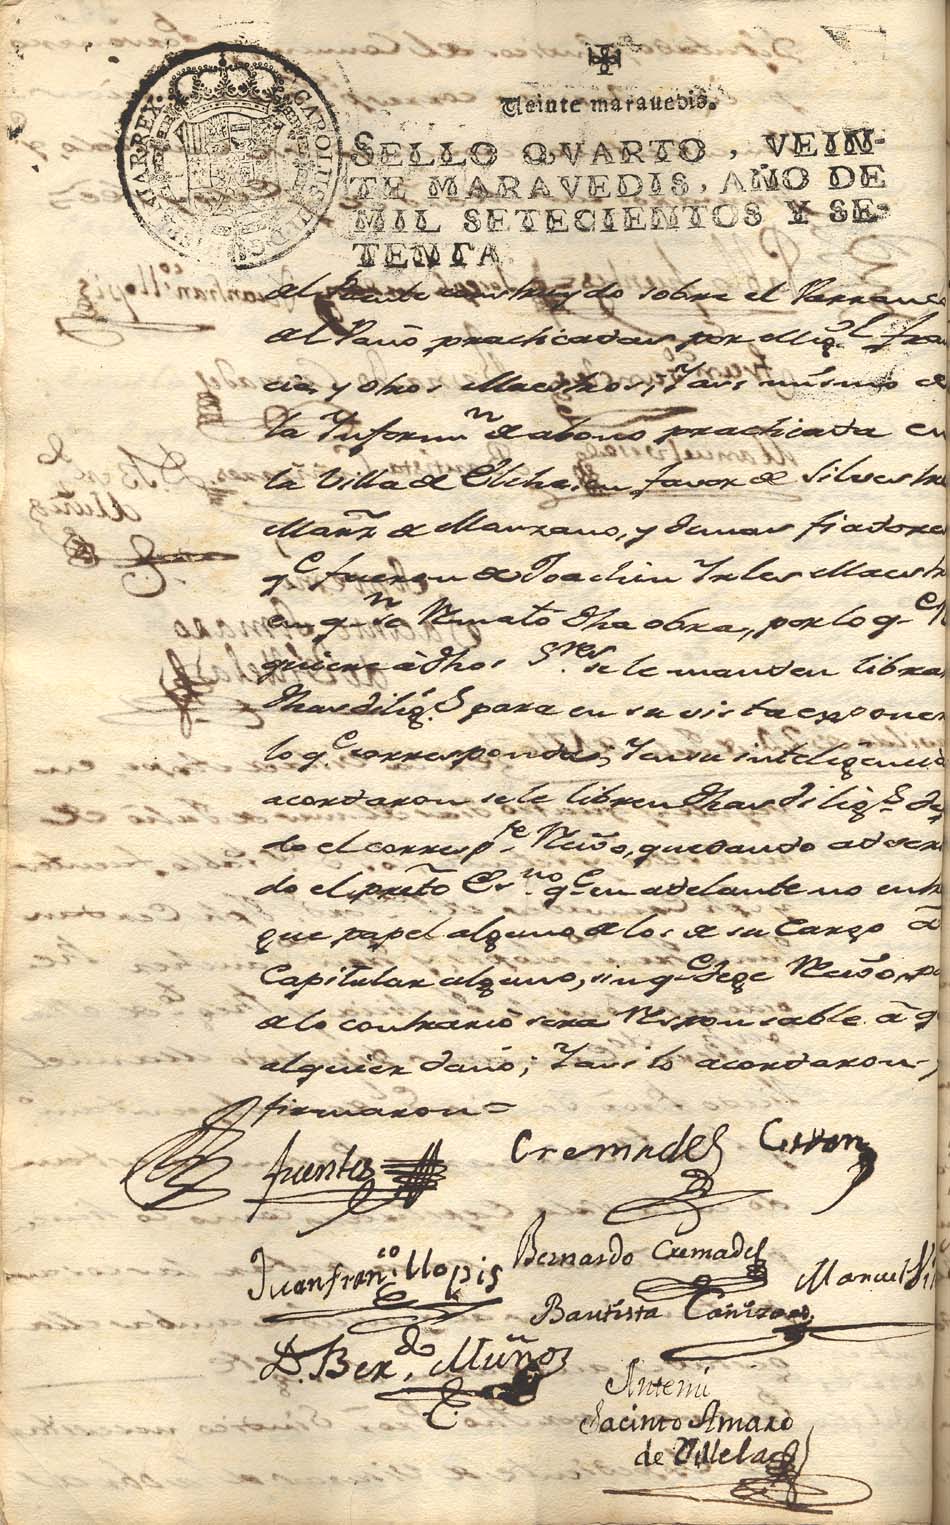 CAROLUS III D G HISPANIAR REX
Veinte maravedis.
SELLO QVARTO, VEIN-
TE MARAVEDIS, AÑO DE
MIL SETECIENTOS Y SE-
TENTA.
del Puente construydo sobre el Varranco
del Pano practicadas por Mig.l Fran
cia, y otros Maestros, Y asi mismo de
la Inform.n de abono practicada en
la Villa de Elche, en favor de Silvestre
Marz de Manzano, y demas fiadores
q.e fueron de Joachin Irles Maestro
en q.n se Remato dha obra, por lo q.e Re
quiere à dhos S.res se le manden librar
dhas dilig.s para en su vista exponer
lo q.e corresponda; Y en su inteligencia
acordaron se le libren dhas dilig.s dan
do el corresp.te Recivo, quedando adverti
do el preste Es.no q.e en adelante no entre
gue papel alguno de los de su cargo à
Capitular alguno, sin q.e dege Recivo, pa
de lo contrario sera Responsable à qu
alquier daño; Y asi lo acordaron y
firmaron=
Fuentes Cremades
Juan Fran.co Llopis Bernardo Cremades Manuel
Bautista Cañizares
D. Ber.do Muñoz
Antemi
Jacinto Amaro
de Villela